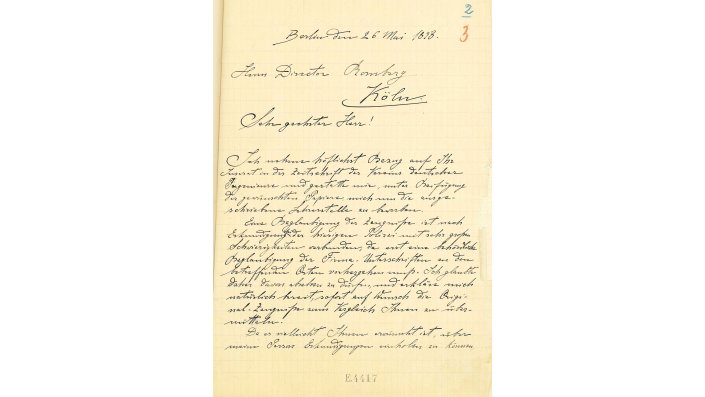 2
3
Berlin den 26 Mai 1898.
Herrn Director Romberg
Köln.
Sehr geehrter Herr!
Ich nehme höflichst Bezug auf Ihr
Inserat in der Zeitschrift des Vereins deutscher
Ingenieure und gestatte mir, unter Beifügung
der gewünschten Papiere mich um die ausge-
schriebene Lehrerstelle zu bewerben.
Eine Beglaubigung der Zeugnisse ist nach
Erkundigung der hiesigen Polizei mit sehr großen
Schwierigkeiten verbunden, da erst eine behördliche
Beglaubigung der Firma-Unterschriften an den
betreffenden Orten vorhergehen muß. Ich glaubte
daher davon absehen zu dürfen, und erkläre mich
natürlich bereit, sofort auf Wunsch die Origi-
nal-Zeugnisse zum Vergleich Ihnen zu über-
mitteln.
Da es vielleicht Ihnen erwünscht ist, ueber
meine Person Erkundigungen einholen zu können
E4417